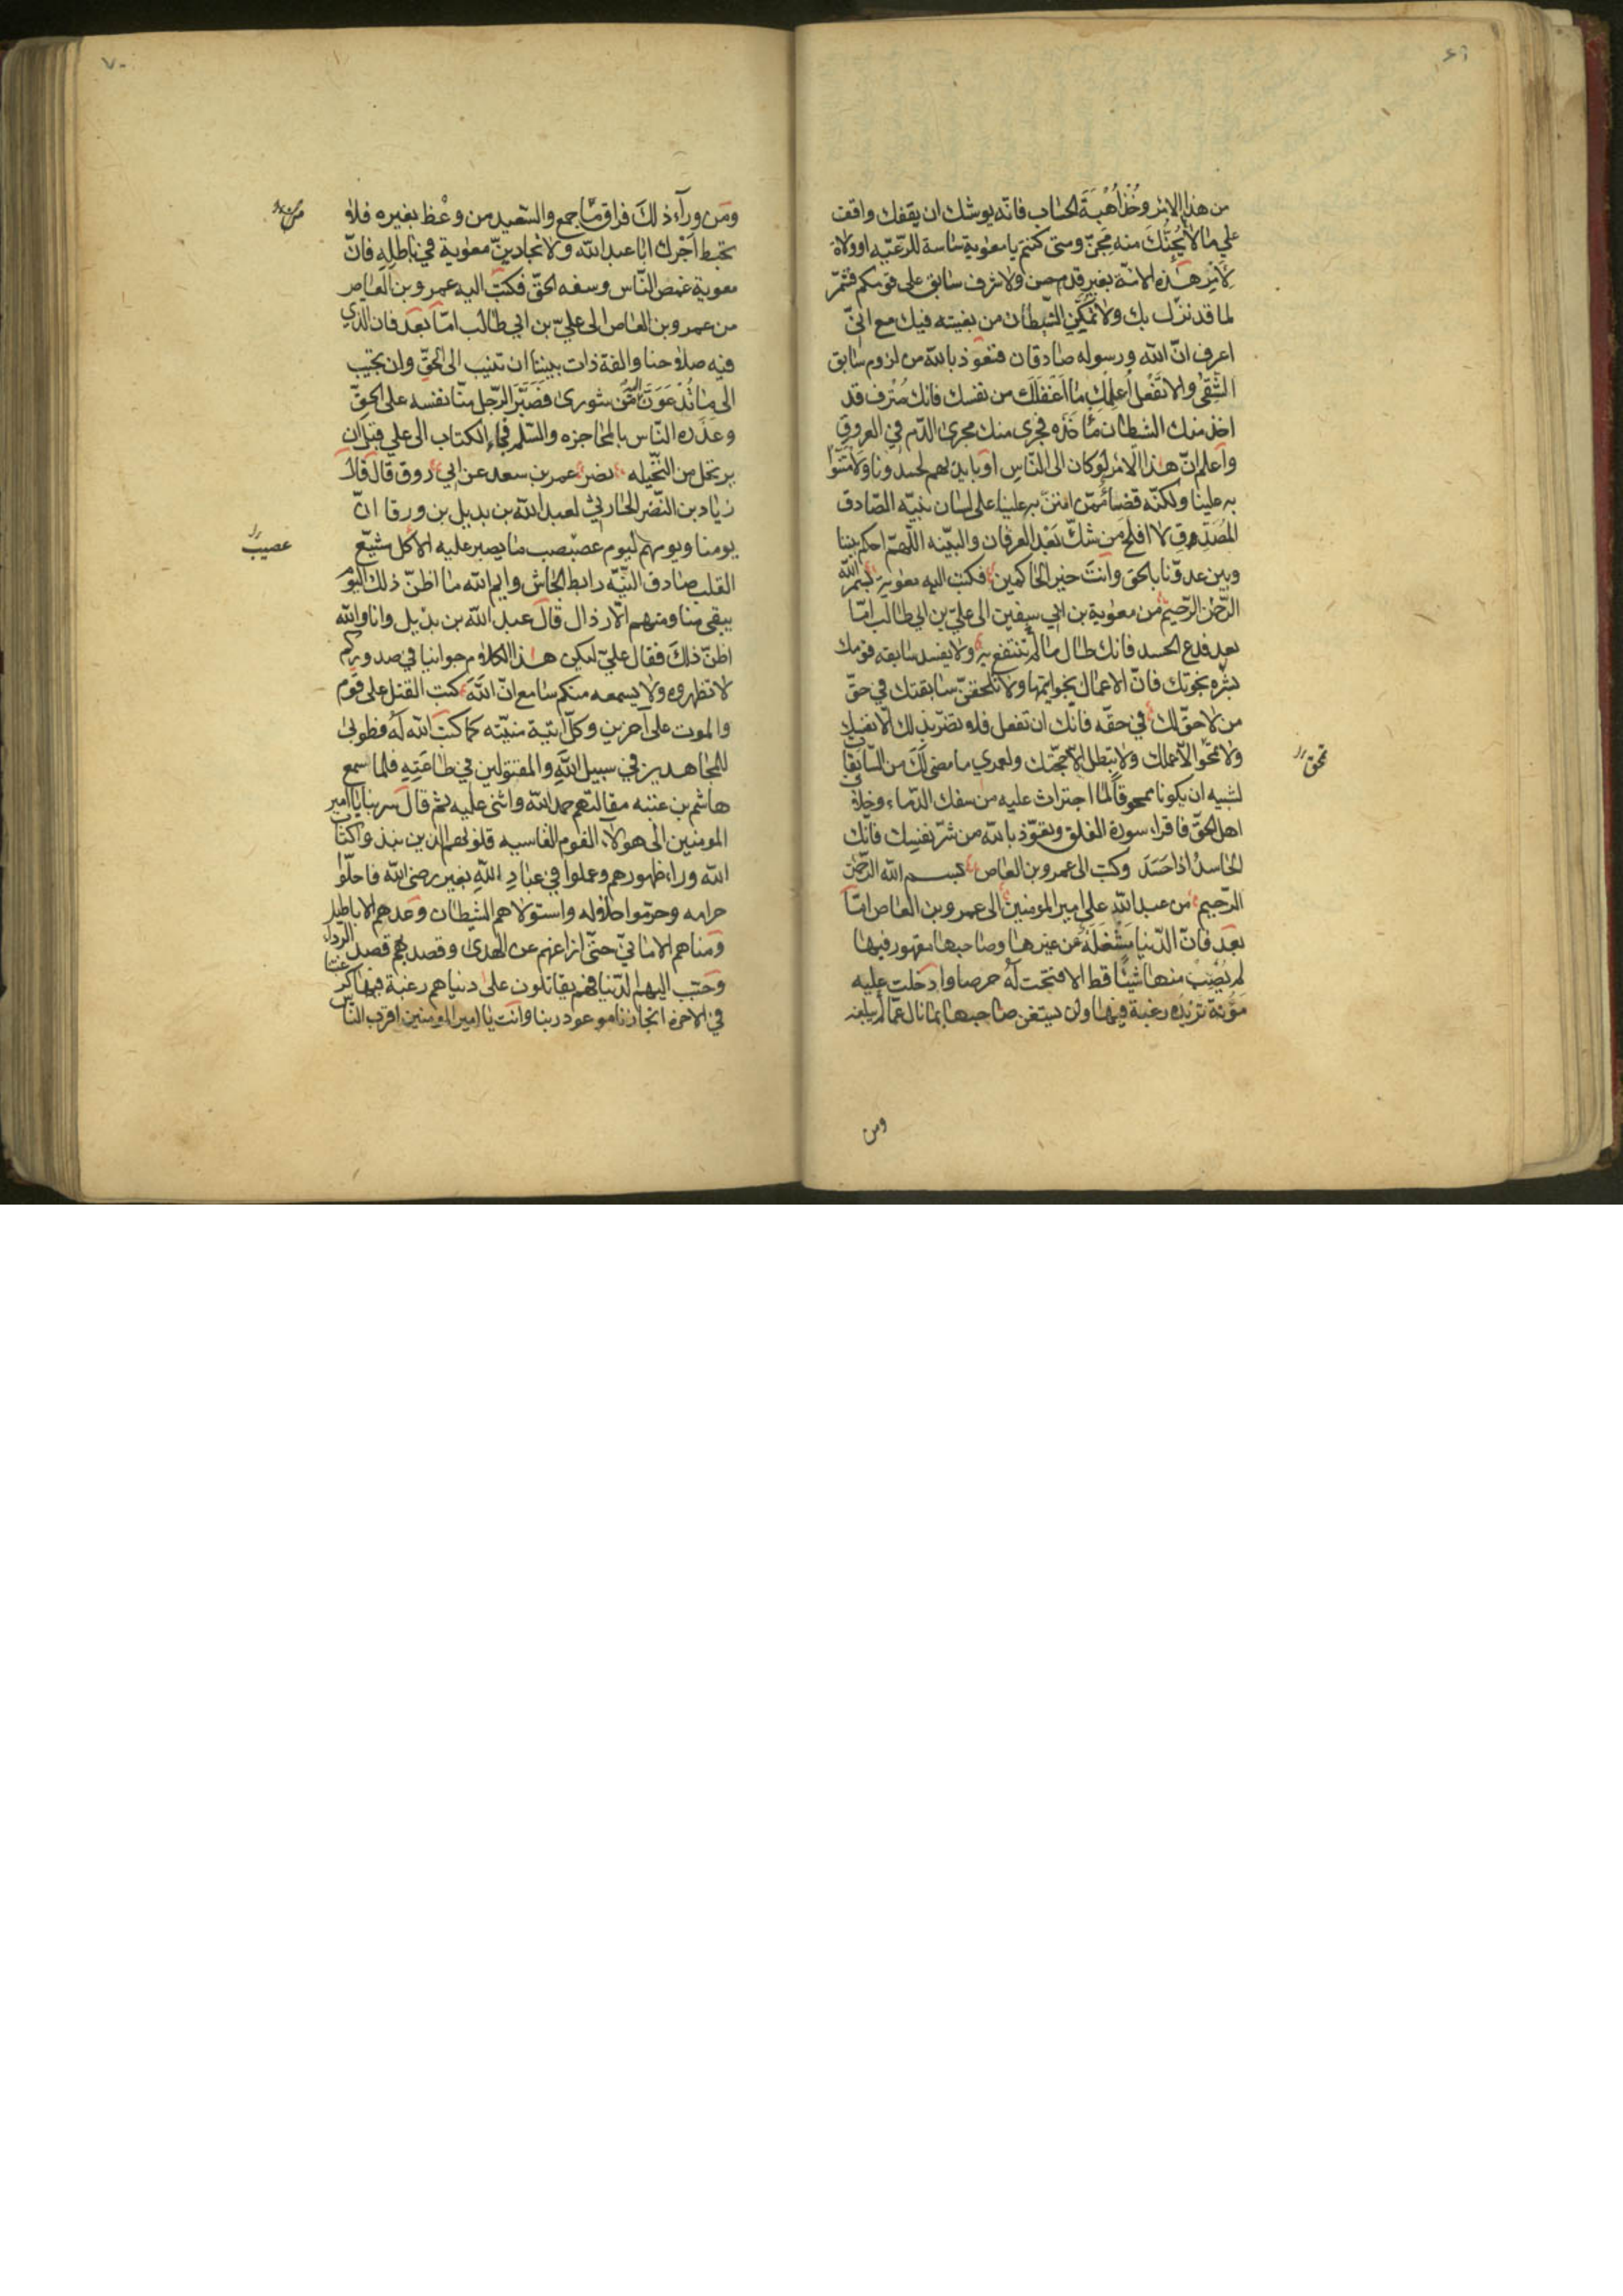 ٦٩
من هذا الامر وخذ اُهْبَةَ الحساب فانّه يوشك ان يقفك واقف
على مالا يُجِنُّكَ منه مِجَنّ ومتى كنتم يا معوية ساسة للرّعيّه او ولاة
لامر هذه الامّة بغير قدم حسن ولا شرف سابق على قومكم فشمّر
لما قد نزل بك ولا تمكّن الشّيطان من بغيته فيك مع انّي
اعرف انّ الله ورسوله صادقان فنعوذ بالله من لزوم سابق
الشّقى والا تفعل اُعلمك ما اغفلك من نفسك فانك مُتْرف قد
اخذ منك الشيطان مأخذه فجرى منك مجرى الدّم في العروق
واعلم انّ هذا الامر لوكان الى النّاس او بايديهم لحسدونا ولامتنّوا
به علينا ولكنّه قضاء ممّن امتنّ به علينا على لسان نبيّه الصّادق
المصدّق لا افلح من شكّ بعد العرفان والبيّنه اللّهمّ احكم بيننا
وبين عدوّنا بالحق وانت خير الحاكمين فكتب اليه معوية بسم الله
الرّحمن الرّحيم من معوية بن ابي سفين الى عليّ بن ابي طالب امّا
بعد فدع الحسد فانك طال ما لم تنتفع به ولا يفسد سابقه قومك
بشره نخوتك فانّ الاعمال بخواتيمها ولا تمحقنّ سابقتك في حقّ
من لا حقّ لك في حقّه فانّك ان تفعل فلا تضرّ بذلك الّا نفسك
ولا تمحو الّا عملك ولا تبطل الّا حجّتك ولعمري ما مضى لك من السّابقات
لشبيه ان يكون ممحوقاً لما اجترات عليه من سفك الدّماء وخلاف
اهل الحقّ فاقرا، سورة الفلق وتعوّذ بالله من شرّ نفسك فانّك
الحاسد اذا حَسَدَ وكتب الى عمرو بن العاص بسم الله الرّحمن
الرّحيم من عبدالله علي امير المومنين الى عمرو بن العاص امّا
بعد فانّ الدّنيا مَشْغَلَةٌ عن غيرها وصاحبها مقهور فيها
لم يُصِبْ منها شيئاً قط الا فتحت له حرصا وادخلت عليه
مؤنة تزيده رغبة فيها ولن يستغن صاحبها بما نال عمّا لم يبلغه
ومن
تمحق
٧٠
ومن وراء ذلك فراق ما جمع والسّعيد من وعظ بغيره فلا
تحبط اجرك ابا عبدالله ولا تجارينّ معوية في باطله فانّ
معوية غمص النّاس وسفه الحقّ فكتب اليه عمرو بن العاص
من عمرو بن العاص الى عليّ بن ابي طالب امّا بعد فان الذي
فيه صلاحنا والفة ذات بيننا ان تنيب الى الحقّ وان تجيب
الى ما تُدْعَوْنَ شورى فصبّر الرّجل منّا نفسه على الحقّ
وعذره النّاس بالمحاجزه والسّلم فجاء الكتاب الى علي قبل ان
يرتحل من النّخيله نضر عمر بن سعد عن ابي روق قال قال
زياد بن النّضر الحارثي لعبدالله بن بديل بن ورقا انّ
يومنا ويومهم ليوم عصبصب ما يصبر عليه الا كل مشيّع
القلب صادق النّيّه رابط الجاش وايم الله ما اظنّ ذلك اليوم
يبقى منا ومنهم الّا رذال قال عبدالله بن بديل وانا والله
اظنّ ذلك فقال عليّ ليكن هذا الكلام جوابنا في صدوركم
لا تظهروه ولا يسمعه منكم سامع انّ الله كتب القتل على قوم
والموت على آخرين وكلّ اتيه منيّته كما كتب الله له فطوبى
للمجاهدين في سبيل الله والمقتولين في طاعته فلما سمع
هاشم بن عتبه مقالتهم حمد الله واثنى عليه ثم قال سربنا يا امير
المومنين الى هولاء القوم القاسيه قلوبهم الذين نبذوا كتاب
الله وراء ظهورهم وعملوا في عباد الله بغير رضى الله فاحلّوا
حرامه وحرّموا حلاله واستولاهم الشّيطان وعدهم الاباطيل
ومناهم الاماني حتّى ازاغهم عن الهدى وقصد بهم قصد الرّدى
وحبّب اليهم الدّنيا فهم يقاتلون على دنياهم رغبة فيها كرغبتنا
في الاخرة انجازنا موعود ربنا وانت يا امير المومنين اقرب الناس
عصيب